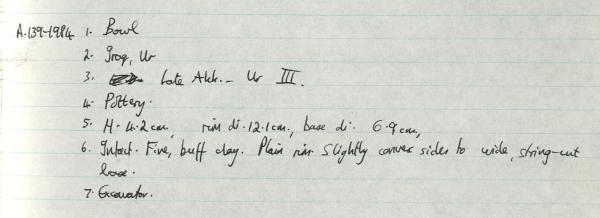 A.139-1984 1. Bowl
2. Iraq, Ur
3. Late Akk. - Ur III.
4. Pottery.
5. H. 4.2cm, rim di. 12.1cm, base di. 6.9cm,
6. Intact. Fine, buff clay. Plain rim. Slightly convex sides to wide, string-cut
base.
7. Excavator.